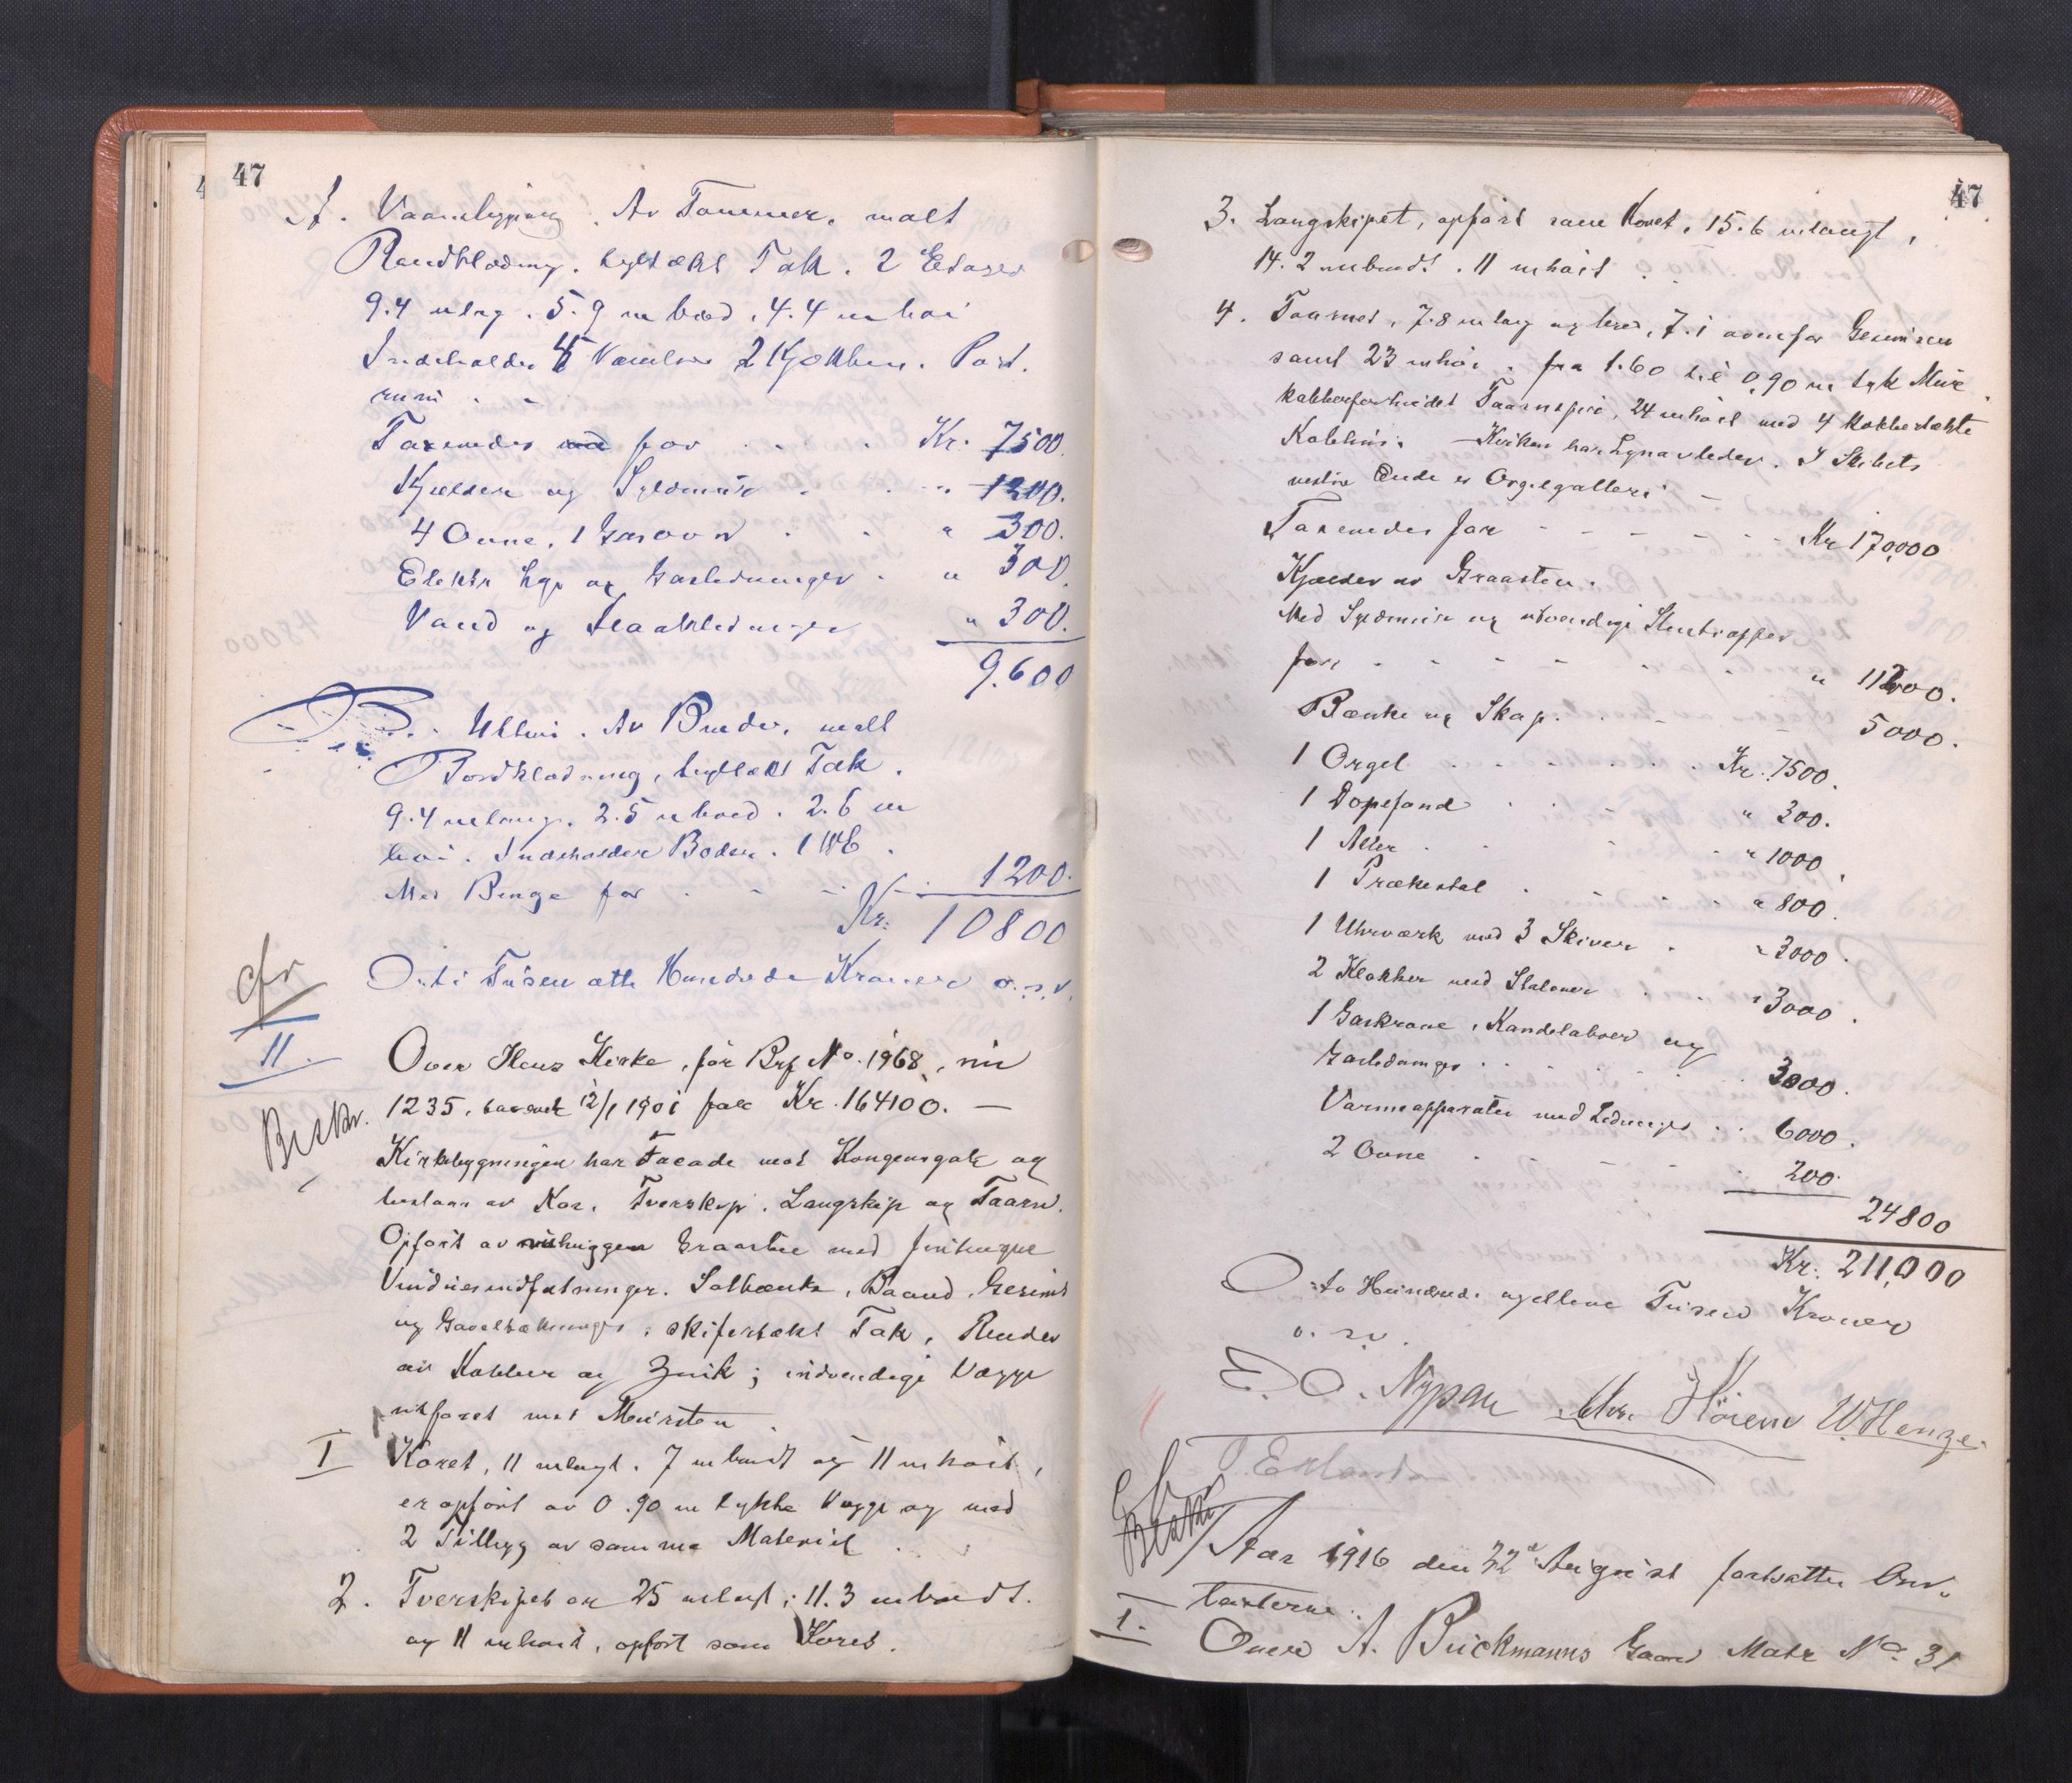 47
A. Vaaningshus. Av Tømmer, malt
Pandklædning, teglsækt Tak. 2 Etager
9.4 m lng. 5.9 m bred. 4.4 m høi
Indeholder 4 Værelser 2 Kjøkken. Port.
rum.
Taxeredes for Kr. 7500.
Kjælder og Syldmur " 1200.
4 Ovne, 1 Gasovn " 300.
Elektr Lys og Gasledninger " 300.
Vand og Kloakledninger " 300.
9.600
B. Uthus. Av Binder, malt
Bordklædning, teglsækt Tak.
9.4 m lang. 2.5 m bred. 2.6 m
høi. Indeholder Boder. 1 WC.
Med Binge for 1200.
Kr. 10800
Otti Tusen otte Hundrede Kroner o.s.v.
cfr
11.
Over Ilens Kirke, før Brf No. 1968, nu
1235, taxerede 12/1 1901 for Kr. 164100. —
Beskr.
Kirkebygningen har Facade mot Kongensgate og
bestaar av Kor, Tverskip, Langskip og Taarn.
Opført av raahuggen Graasten med finhugne
Vinduesindfatninger, Solbænke, Baand, Gesims
og Gaveltækninger, skifertækt Tak, Render
av Kobber og Zink; indvendige Vægge
utforet med Mursten.
I Koret, 11 m langt, 7 m bredt og 11 m høit,
er opført av 0.90 m tykke Vægge og med
2 Tilbyg av samme Materiel.
2. Tverskipet er 25 m langt, 11.3 m bredt.
og 11 m høit, opført som Koret.
47
3. Langskipet, opført som Koret, 15.6 m langt,
14.2 m bredt. 11 m høit.
4. Taarnet, 7.8 m lang og bred, 7.1 ovenfor Gesimsen
samt 23 m høi. fra 1.60 til 0.90 m tyk Mur
kobberforhudet Taarnspir, 24 m høit med 4 kobbertækte
Kobbhus. Kirken har Lynavleder. I Skibets
vestre Ende er Orgelgalleri
Taxeredes for Kr 170000
Kjælder av Graasten.
Med Syldmur og utvendige Stentrapper
for " 11200.
Bænke og Skap. 5000.
1 Orgel Kr. 7500.
1 Døpefond " 300.
1 Alter " 1000.
1 Prækestol " 800.
1 Uhrværk med 3 Skiver " 3000.
2 Klokker med Stoloner " 3000.
1 Gaskrone, Kandelabrer og
Gasledninger 3000.
Varmeapparater med Ledninger 6000.
2 Ovne 200.
24800
Kr. 211,000
To Hundrede og elleve Tusen Kroner
o. s. v.
E. O. Nypan Chr. Hörem W. Henze.
O. Erlandsen
Beskr
Aar 1916 den 22de August fortsatte Bran-
taxterne.
1. Over A. Buckmanns Gaard Matr No. 31